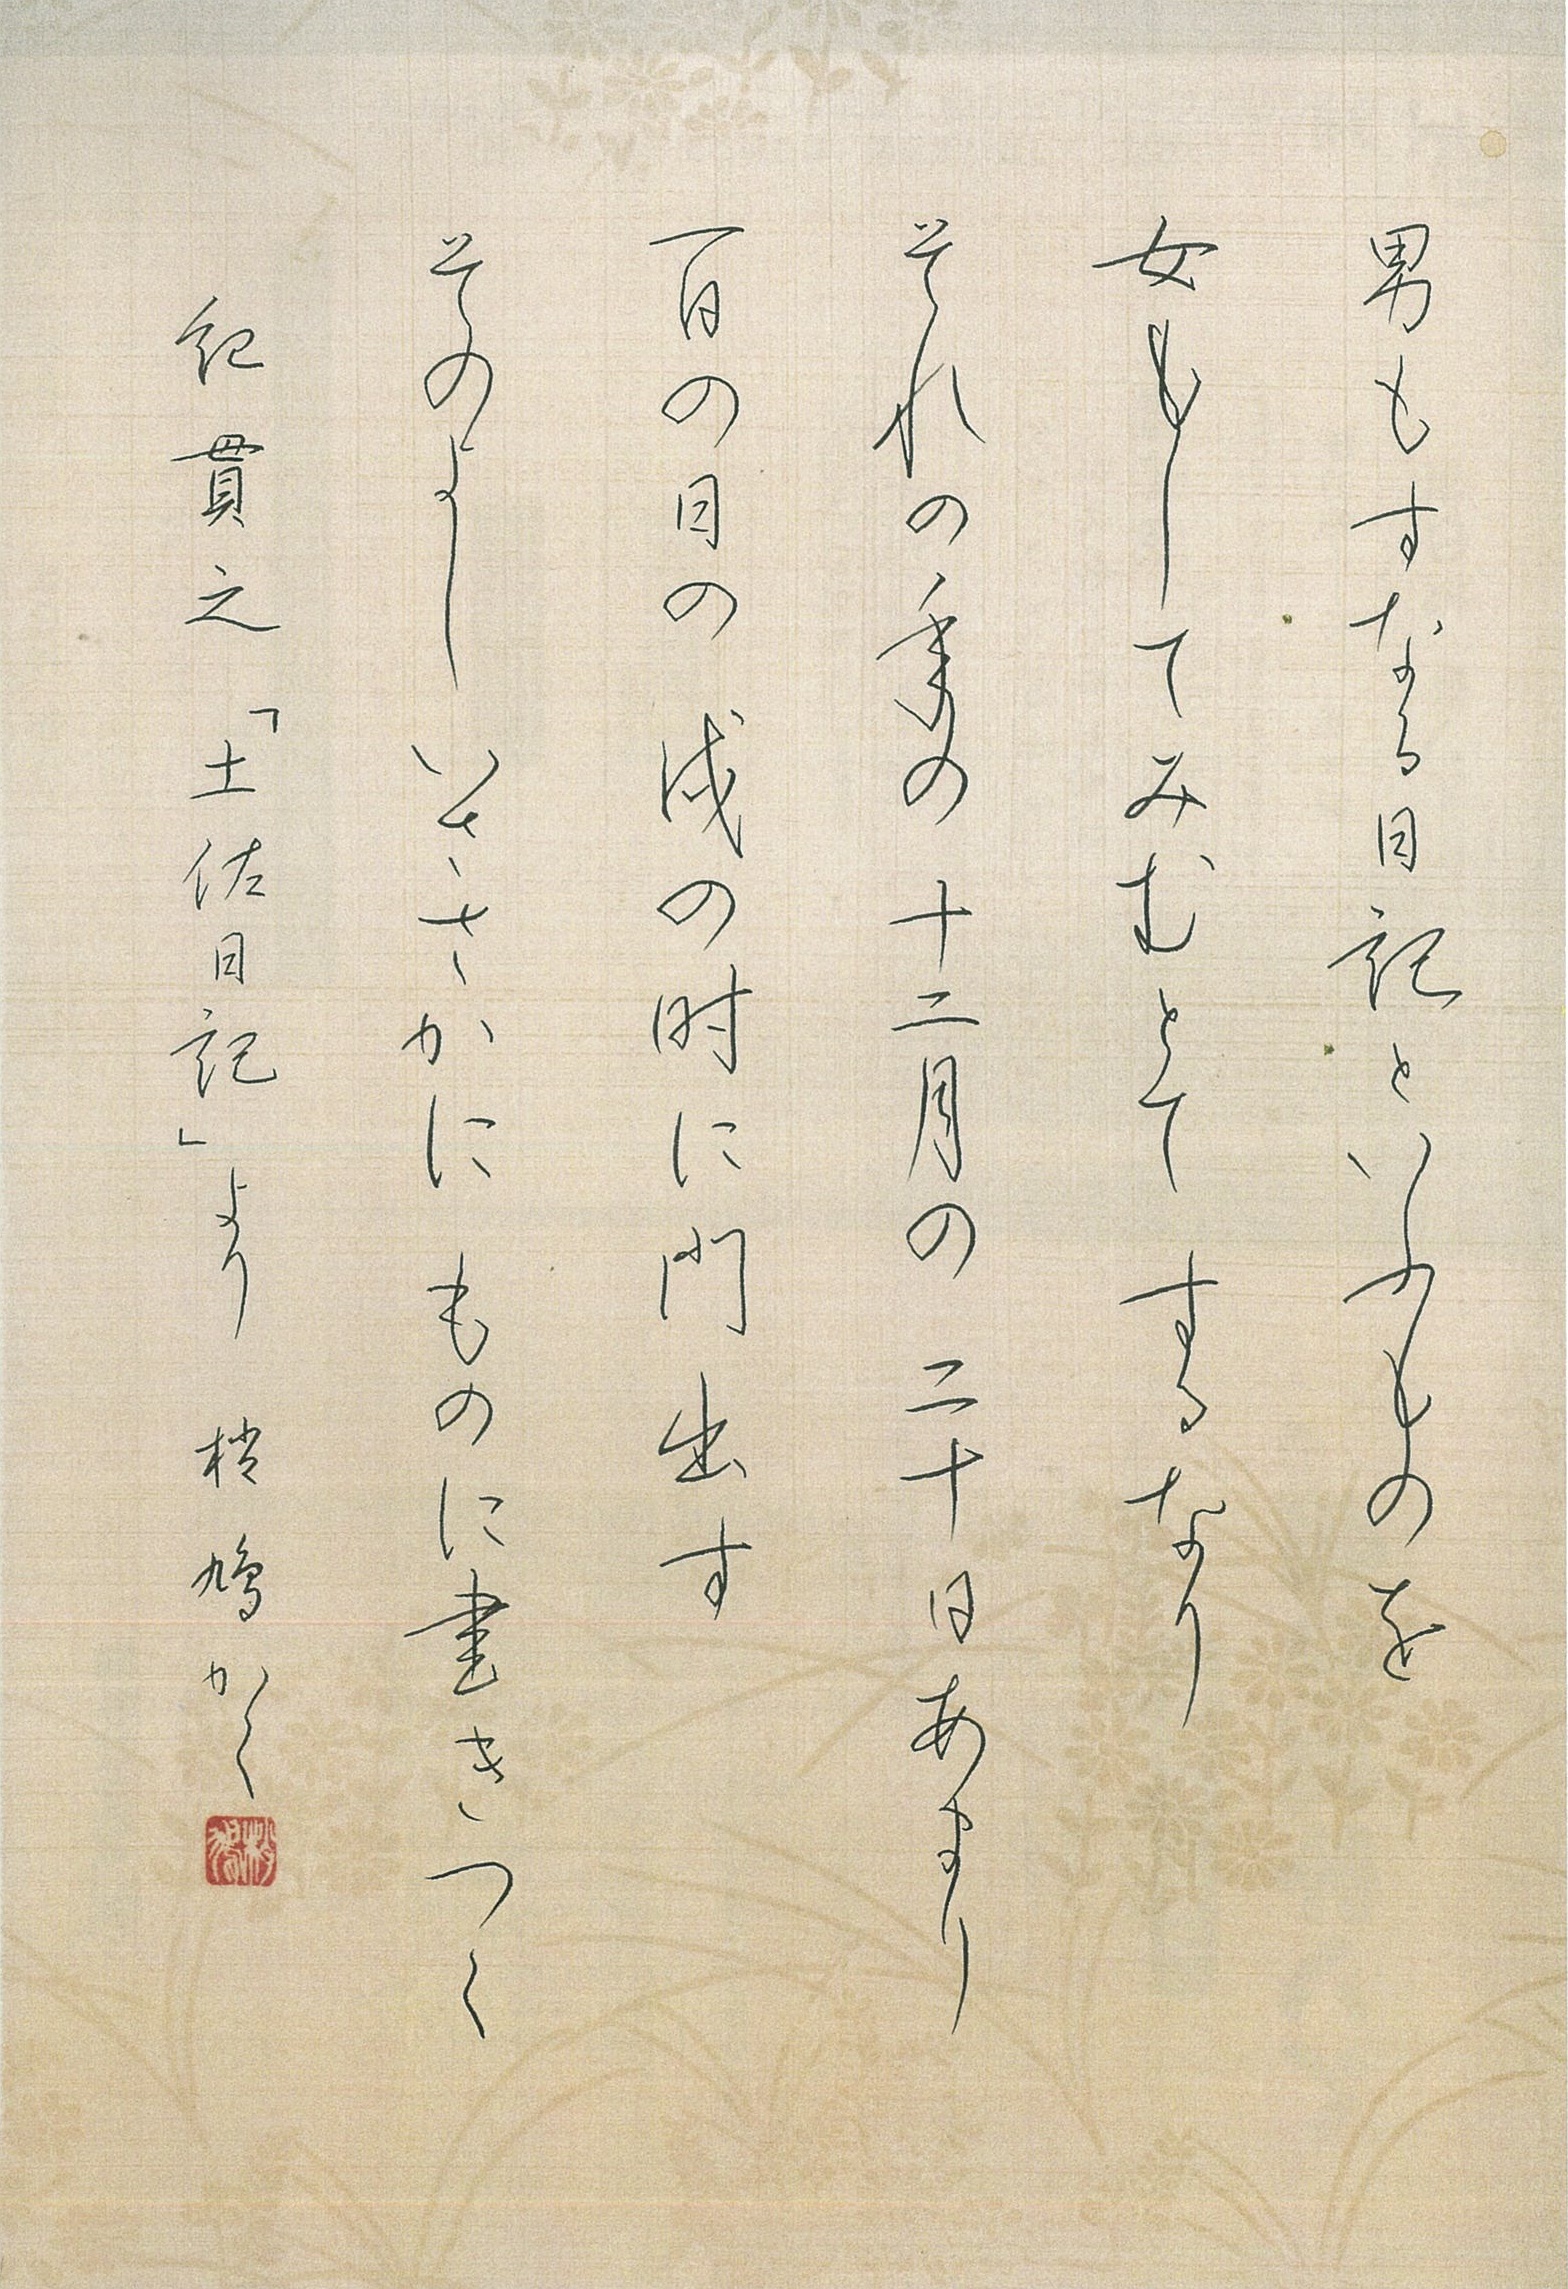 男もすなる日記といふものを
女もしてみむとて するなり
それの年の 十二月の 二十日あまり
一日の日の 戌の時に門出す
そのよし いささかに ものに書きつく
紀貫之「土佐日記」より 梢鳩かく